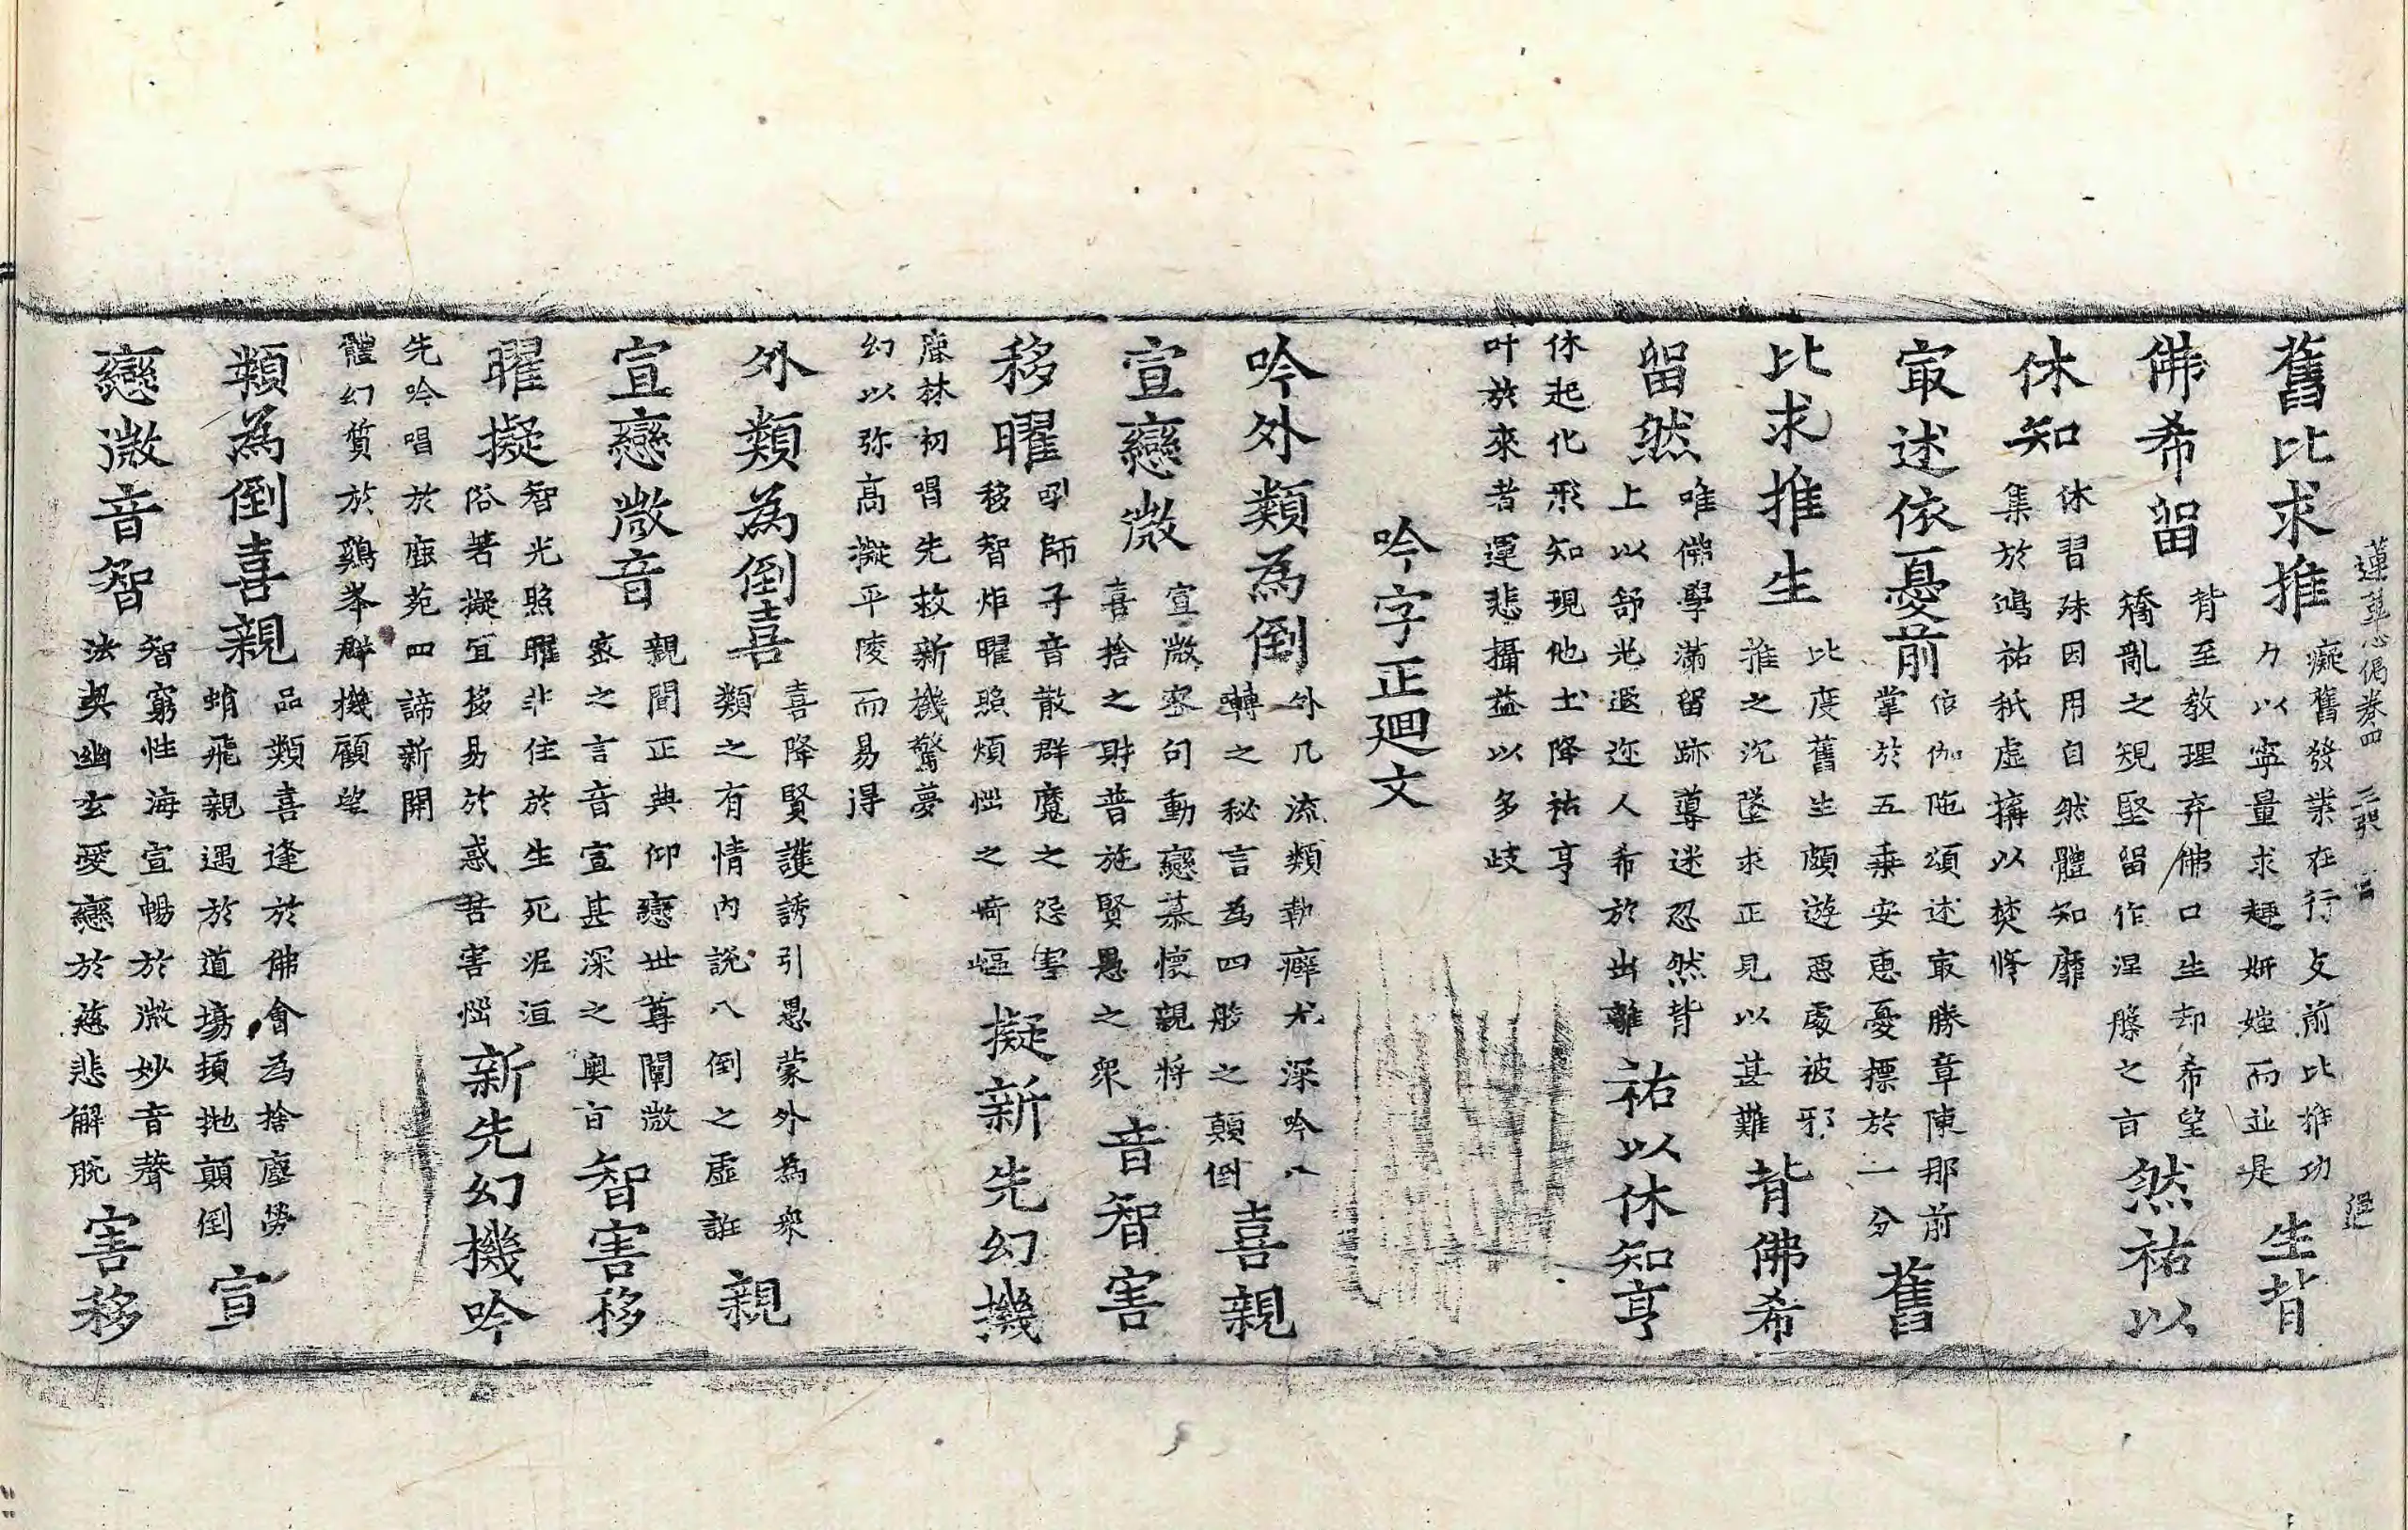 蓮華心偈卷四 三張 過
舊比求推
癡舊發業在行支前比推功
力以寧量求趣妍媸而並是
生背
佛希留
背至教理弃佛口生却希望
矯亂之規堅留作涅槃之旨
然祐以
休知
休習殊因用自然體知靡
集於鴻祐秖虛搆以焚修
㝡述依憂前
依伽陁頌述㝡勝章陳那前
掌於五乘安惠憂摽於一分
舊
比求推生
比度舊生頗遊惡處被邪
推之沉墜求正見以甚難
背佛希
留然
唯佛學滿留跡尊迷忍然背
上以舒光遐迩人希於出離
祐以休知亨
休起化形知現他土降祐亨
叶於來者運悲攝益以多歧
吟字正廻文
吟外類為倒
外凡流類執癖尤深吟八
轉之秘言為四般之顛倒
喜親
宣戀微
宣微密句動戀慕懷親將
喜捨之財普施賢愚之衆
音智害
移曜
吼師子音散群魔之怨害
移智炬曜照煩惱之崎嶇
擬新先幻機
鹿林初唱先救新機驚夢
幻以弥高凝平陵而易得
外類為倒喜
喜降賢護誘引愚蒙外為衆
類之有情內說八倒之虛誑
親
宣戀微音
親聞正典仰戀世尊闡微
密之言音宣甚深之奧旨
智害移
曜擬
智光照曜非住於生死涅洹
俗著擬宜移易於惑苦害惱
新先幻機吟
先吟唱於鹿苑四諦新開
體幻質於鷄峯群機顧望
類為倒喜親
品類喜逢於佛會為捨塵勞
蛸飛親遇於道場頓抛顛倒
宣
戀微音智
智窮性海宣暢於微妙音聲
法契幽玄愛戀於慈悲解脫
害移